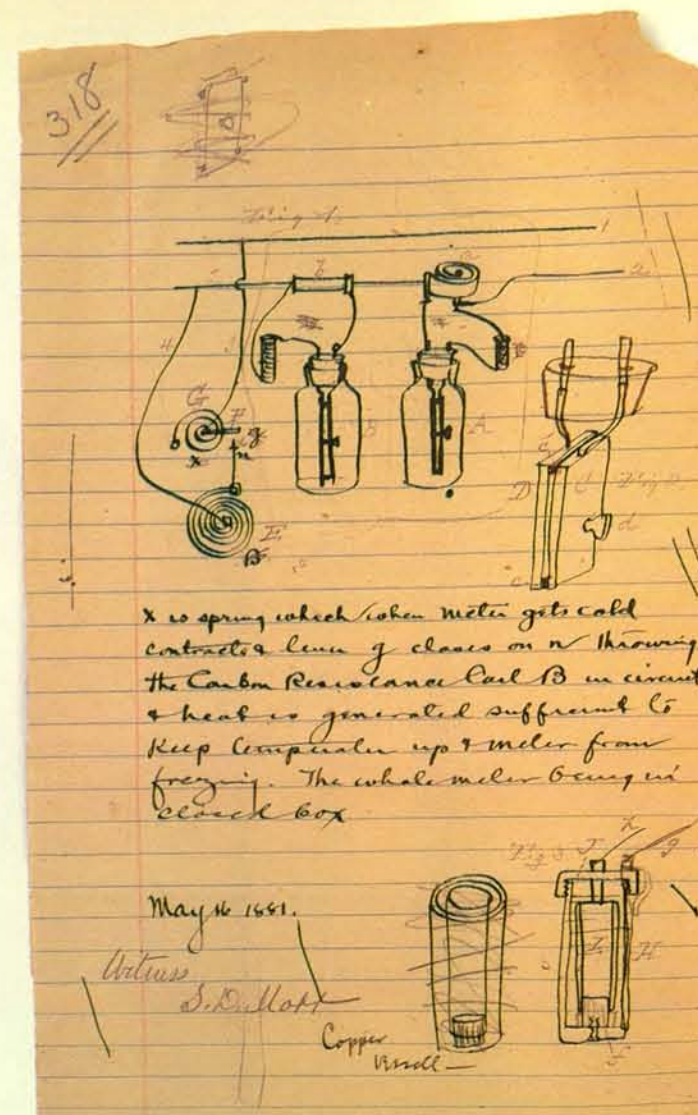 318
Fig 1.
1
a
b
2
4
3
G
F
g
x
n
B
A
E
B
c
D
C
d
c
x is spring which when meter gets cold
contracts & lever g closes on n throwing
the Carbon Resistance Coil B in circuit
& heat is generated sufficient to
Keep temperatur up & meter from
freezing. The whole meter being in
closed box
May 16 1881.
Witness
S. D. Mott
Fig 3 J
h
g
I
H
Copper
Vessell —